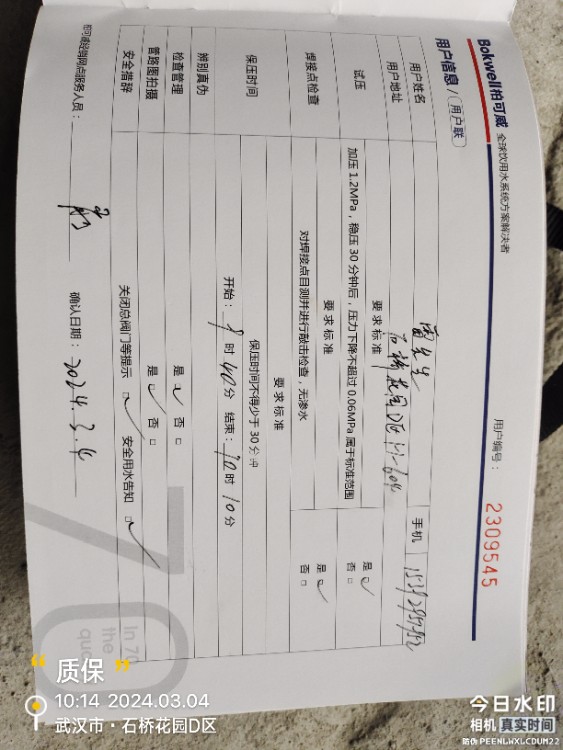 Bokwell柏可威 全球饮用水系统方案解决者
用户编号：2309545
用户信息/用户联
用户姓名 雷先生 手机
用户地址 石桥花园D区
试压 要求标准
加压1.2MPa，稳压30分钟后，压力下降不超过0.06MPa属于标准范围 是☑ 否□
焊接点检查 要求标准
对焊接点目测并进行敲击检查，无渗水 是☑ 否□
保压时间 要求标准
保压时间不得少于30分钟
开始：9时40分 结束：10时10分
辨别真伪 是☑ 否□
检查管理 是☑ 否□
管路图拍摄
安全措辞 关闭总阀门等提示☑ 安全用水告知☑
柏可威经销网点服务人员：
确认日期：2024.3.4
In 70
the
quo
“质保”
10:14 2024.03.04
武汉市·石桥花园D区
今日水印
相机 真实时间
防伪 PEENLWXLCDUM22